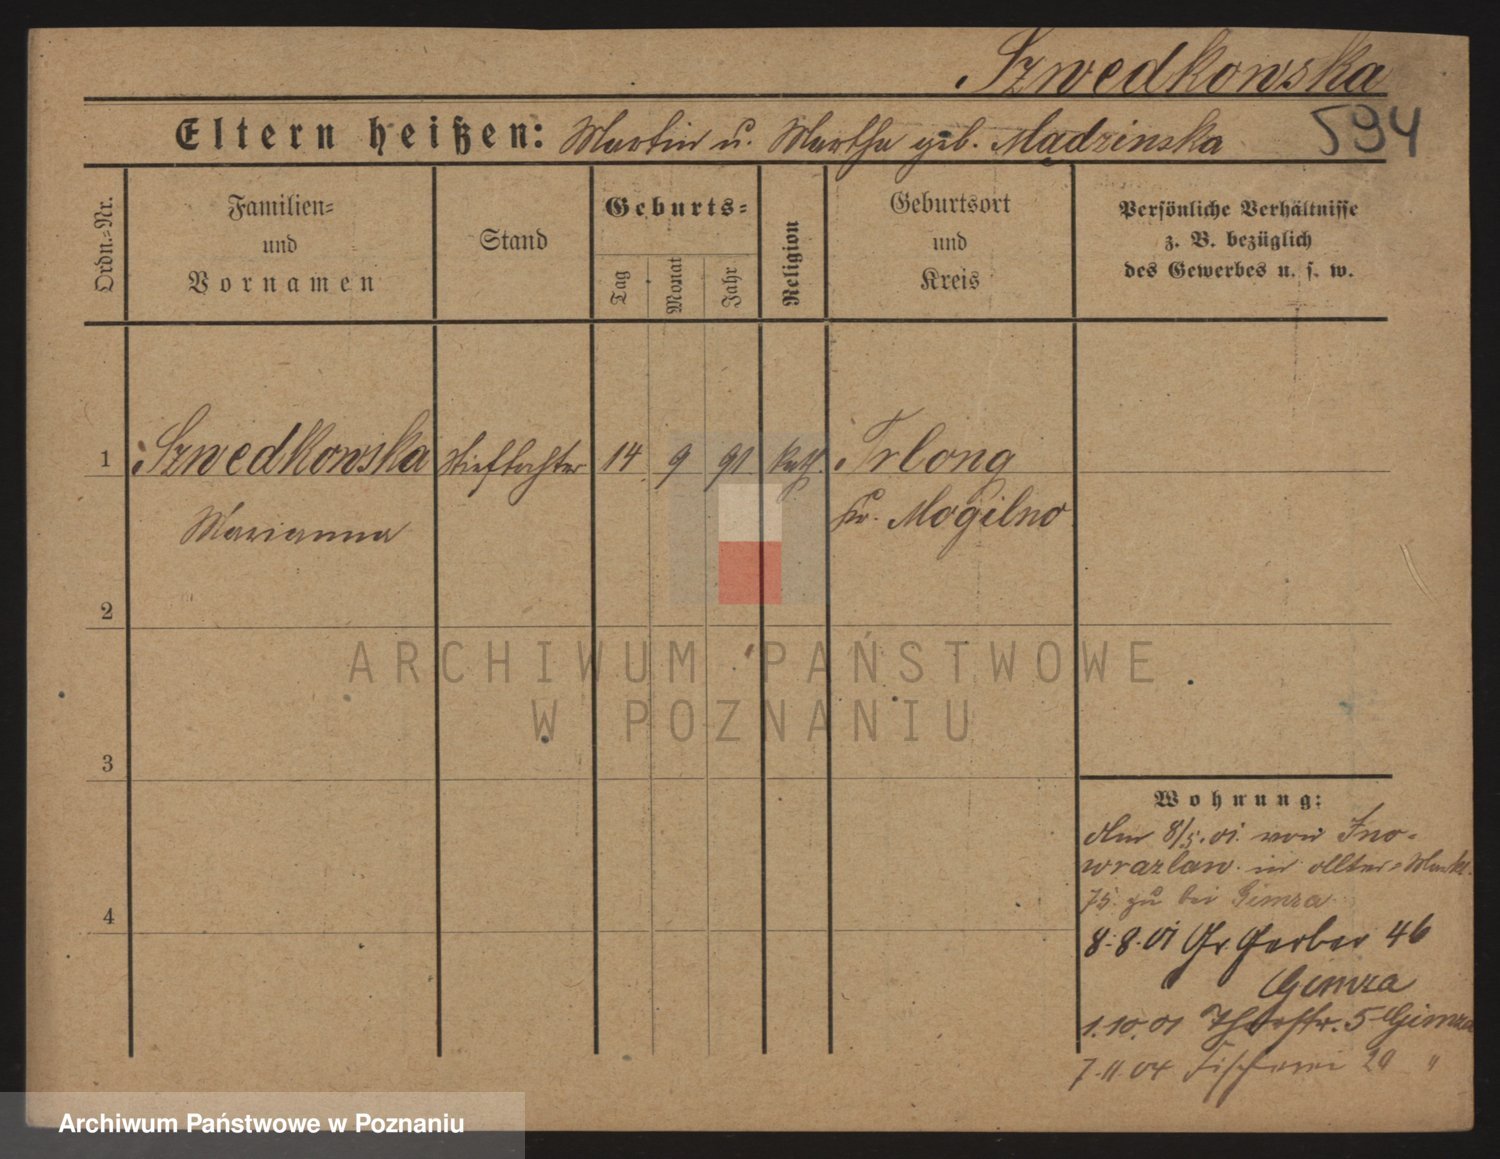 Szwedkowska
594
Eltern heißen: Martin u. Martha geb. Mądzinska
Ordn.-Nr.
Familien-
und
Vornamen
Stand
Geburts-
Tag
Monat
Jahr
Religion
Geburtsort
und
Kreis
Persönliche Verhältnisse
z. B. bezüglich
des Gewerbes u. s. w.
1 Szwedkowska Stieftochter 14 9 91 kath. Trlong
Marianna Kr. Mogilno
2
3
4
ARCHIWUM PAŃSTWOWE
W POZNANIU
Wohnung:
8/5.01. von Ino-
wrazlaw in
75. zu bei Gimza
8.8.01 Gr Gerber 46
Gimza
1.10.01 Thorstr. 5 Gimza
7.11.04 Fischerei 20 "
Archiwum Państwowe w Poznaniu